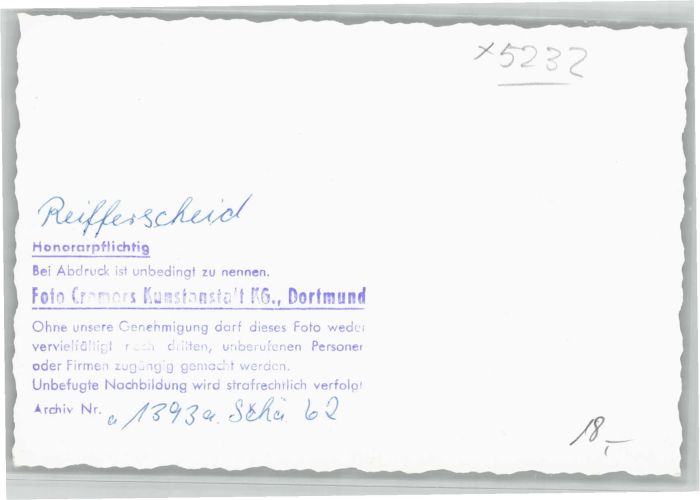 x5232
Reifferscheid
Honorarpflichtig
Bei Abdruck ist unbedingt zu nennen.
Foto Cramers Kunstanstalt KG., Dortmund
Ohne unsere Genehmigung darf dieses Foto weder
vervielfältigt noch dritten, unberufenen Personen
oder Firmen zugängig gemacht werden.
Unbefugte Nachbildung wird strafrechtlich verfolgt
Archiv Nr. a 1393a. Schä 62
18,-